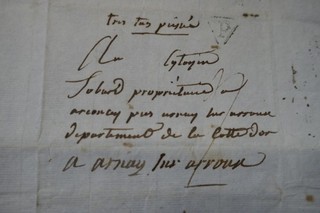 tres tres pressé
Au Cytoyen
Jobard propriétaire a
arconcey pres arnay sur arroux
departement de la Cotte dor
a arnay sur arroux